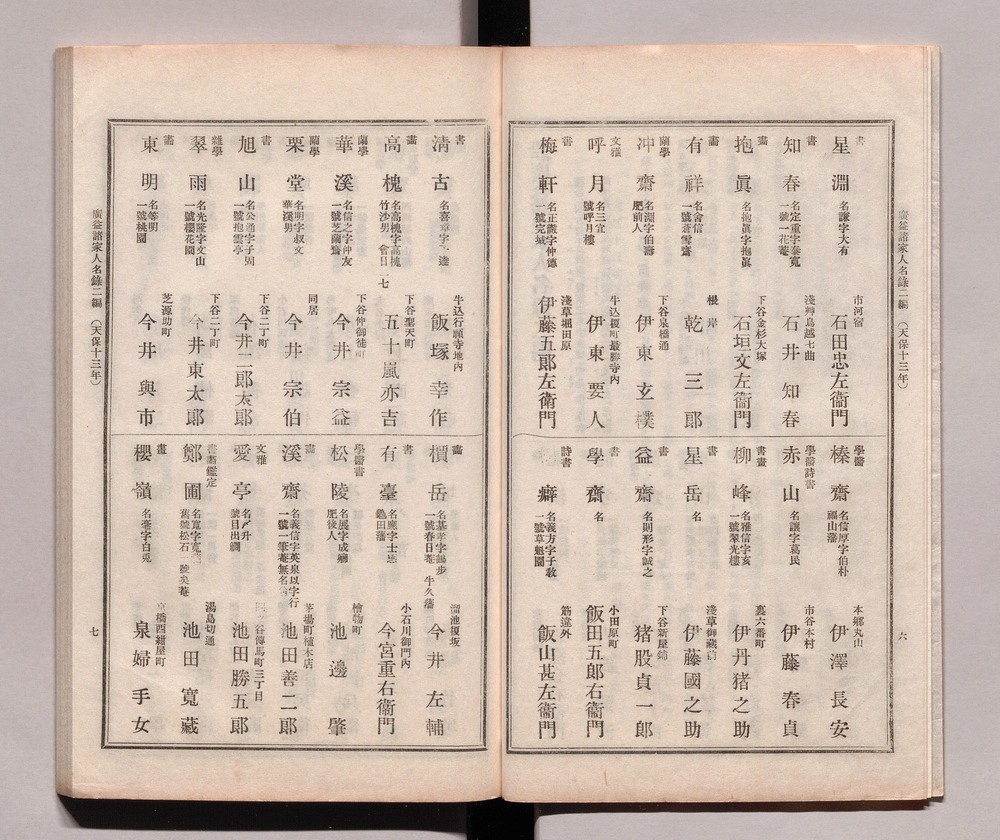 廣益諸家人名錄二編 (天保十三年)
書 星淵 名謙字大有 市河宿 石田忠左衞門
書 知春 名定重字泰寬一號一花菴 淺艸鳥越七曲 石井知春
畵 抱眞 名抱眞字抱眞 下谷金杉大塚 石垣文左衞門
畵 有祥 名舍信一號蒼雪齋 根岸 乾三郎
蘭學 冲齋 名淵字伯壽肥前人 下谷泉橋通 伊東玄樸
文雅 呼月 名三宜號呼月樓 牛込榎町最勝寺内 伊東要人
書 梅軒 名正徽字仲德一號完城 淺草堀田原 伊藤五郎左衞門
學醫 榛齋 名信厚字伯朴福山藩 本郷丸山 伊澤長安
學醫詩書 赤山 名讓字葛民 市谷本村 伊藤春貞
書畫 柳峰 名雅信字亥一號翠光樓 裏六番町 伊丹猪之助
書 星岳 名 淺草御藏前 伊藤國之助
書 益齋 名則形字誠之 下谷新屋鋪 猪股貞一郎
書 學齋 名 小田原町 飯田五郎右衞門
詩書 癖 名義方字子敎一號草魁園 筋違外 飯山甚左衞門
六
書 淸古 名喜章字 逵 牛込行願寺地内 飯塚幸作
畵 高槐 名高槐字高槐竹沙男 會日一七 下谷聖天町 五十嵐亦吉
蘭學 華溪 名信之字沖友一號芝蘭齋 下谷仲御徒町 今井宗益
蘭學 栗堂 名明字叔文華溪男 同居 今井宗伯
書 旭山 名公通字子固一號抱雲亭 下谷二丁町 今井二郎太郎
雜學 翠雨 名光隆字文山一號櫻花園 下谷二丁町 今井東太郎
畵 東明 名等明一號桃園 芝源助町 今井與市
畵 檟岳 名基孝字鶴步一號春日菴 牛久藩 溜池榎坂 今井左輔
書 有臺 名應字士德龜田藩 小石川御門内 今宮重右衞門
學醫書 松陵 名展字成卿肥後人 檜物町 池邊肇
畵 溪齋 名義信字英泉以字行一號一筆菴無名 茅場町植木店 池田善二郎
文雅 愛亭 名〆升號目出嗣 谷傳馬町三丁目 池田勝五郎
書畵鑑定 鄭圃 名寬字寬 舊號松石一號矣菴 湯島切通 池田寬藏
畵 櫻嶺 名毫字白兎 京橋西紺屋町 泉婦手女
廣益諸家人名錄二編 (天保十三年)
七